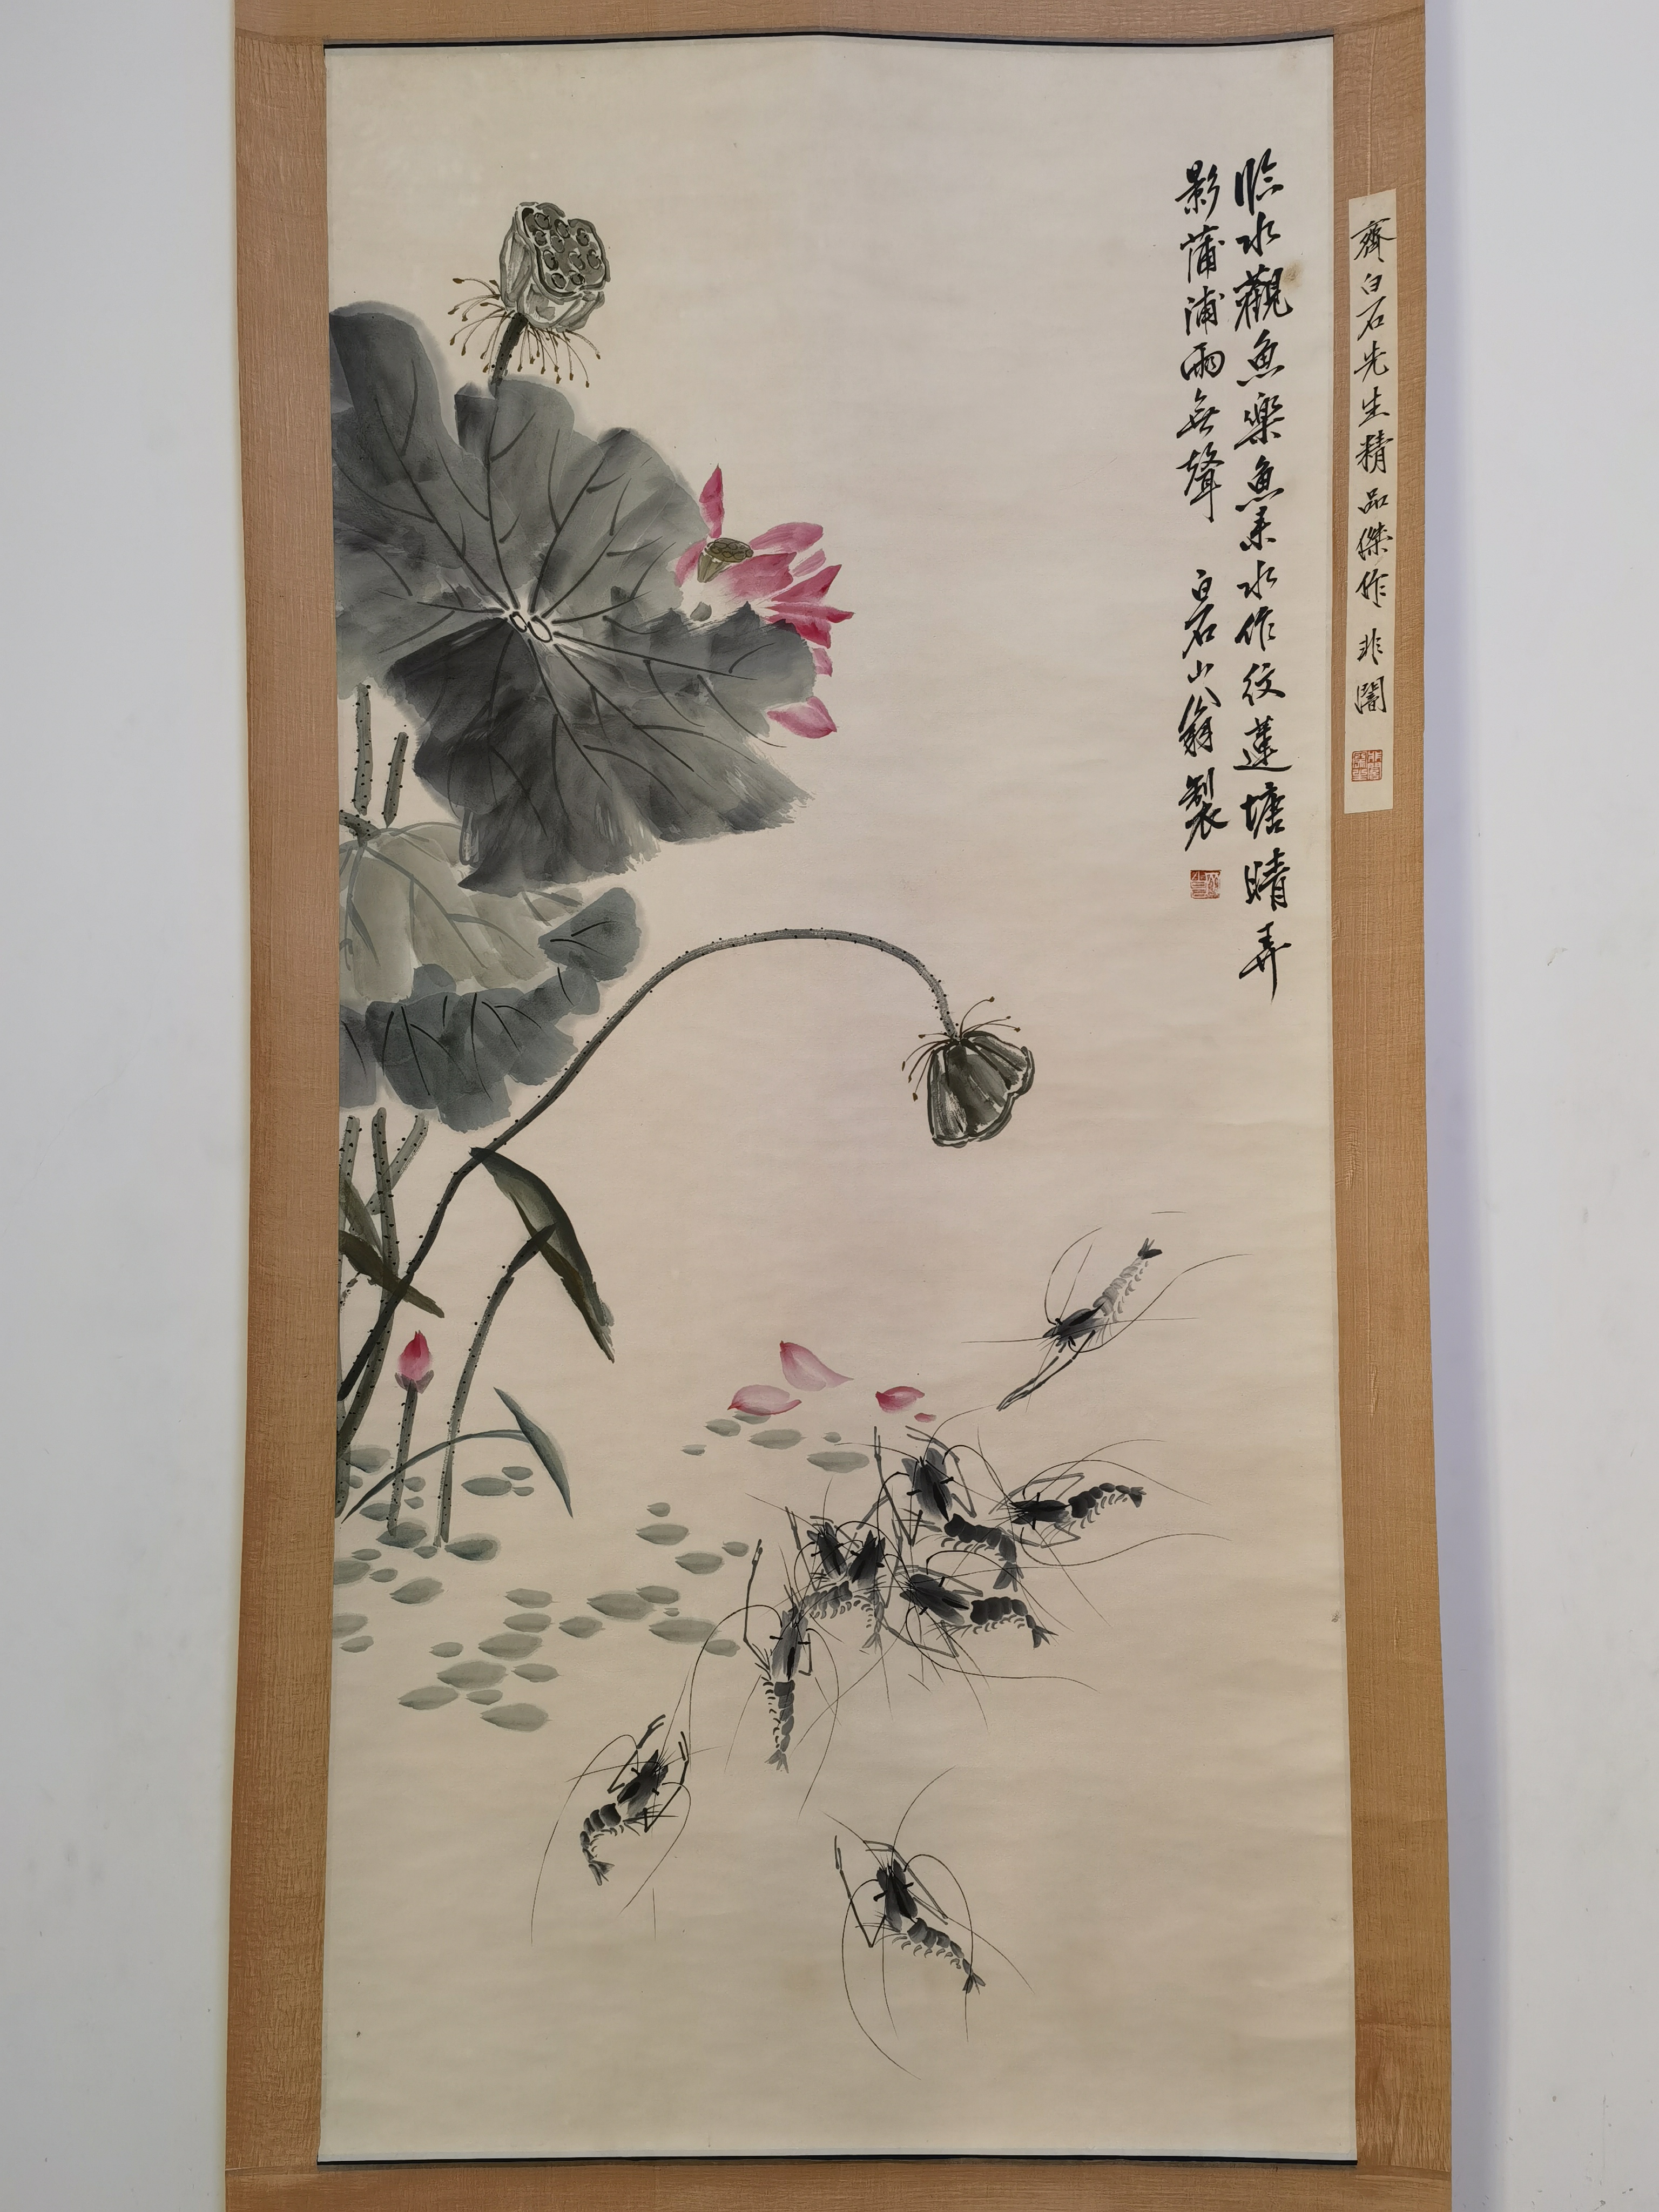 齊白石先生精品傑作 非闇
臨水觀魚樂魚来水作紋蓮塘晴弄
影蒲浦雨無聲 白石山翁製